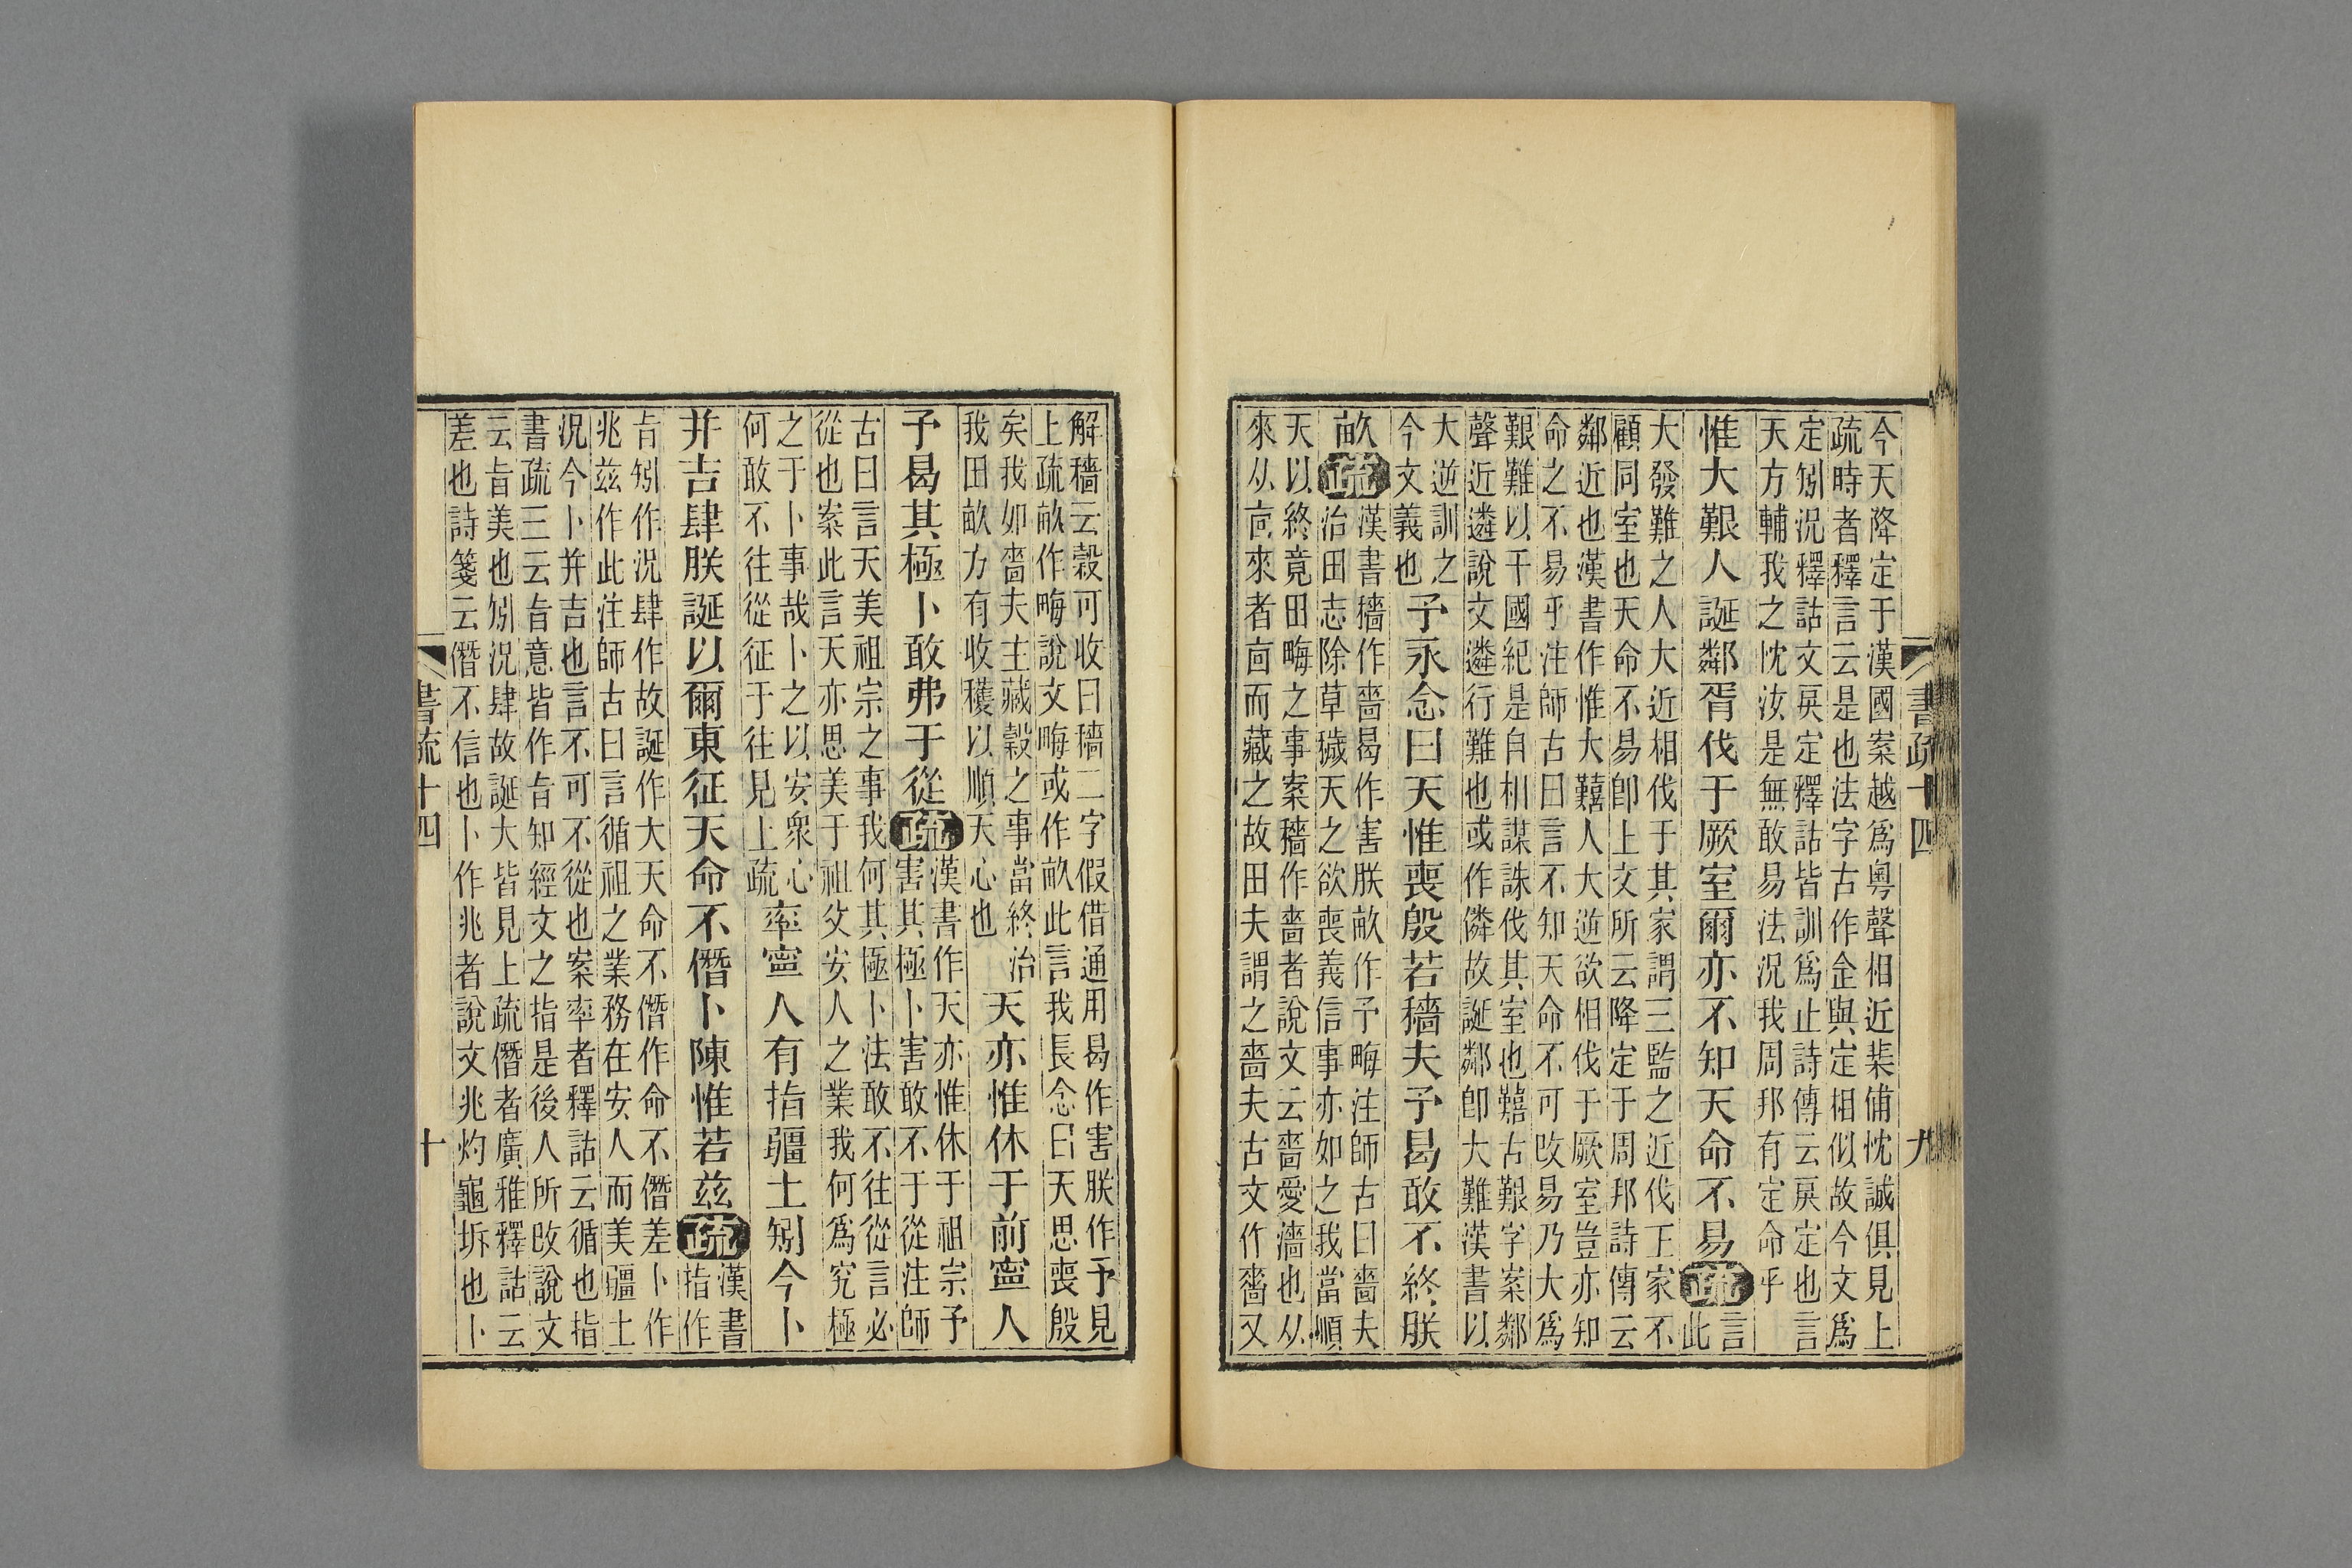 今天降定于漢國案越爲粵聲相近棐俌忱誠俱見上
疏時者釋言云是也法字古作佱與定相似故今文爲
定矧況釋詁文戾定釋詁皆訓爲止詩傳云戾定也言
天方輔我之忱汝是無敢易法況我周邦有定命乎
惟大艱人誕鄰胥伐于厥室爾亦不知天命不易疏言
此
大發難之人大近相伐于其家謂三監之近伐王家不
顧同室也天命不易卽上文所云降定于周邦詩傳云
鄰近也漢書作惟大囏人大逆欲相伐于厥室豈亦知
命之不易乎注師古曰言不知天命不可改易乃大爲
艱難以干國紀是自相謀誅伐其室也囏古艱字案鄰
聲近遴說文遴行難也或作僯故誕鄰卽大難漢書以
大逆訓之
今文義也予永念曰天惟喪殷若穡夫予曷敢不終朕
畝疏漢書穡作嗇曷作害朕畝作予晦注師古曰嗇夫
治田志除草穢天之欲喪義信事亦如之我當順
天以終竟田晦之事案穡作嗇者說文云嗇愛濇也从
來从㐭來者㐭而藏之故田夫謂之嗇夫古文作𤲸又
書疏十四
九
解穡云穀可收曰穡二字假借通用曷作害朕作予見
上疏畝作晦說文晦或作畝此言我長念曰天思喪殷
矣我如嗇夫主藏穀之事當終治
我田畝方有收穫以順天心也天亦惟休于前寧人
予曷其極卜敢弗于從疏漢書作天亦惟休于祖宗予
害其極卜害敢不于從注師
古曰言天美祖宗之事我何其極卜法敢不往從言必
從也案此言天亦思美于祖父安人之業我何爲究極
之于卜事哉卜之以安衆心
何敢不往從征于往見上疏率寧人有指疆土矧今卜
并吉肆朕誕以爾東征天命不僭卜陳惟若茲疏漢書
指作
旨矧作況肆作故誕作大天命不僭作命不僭差卜作
兆茲作此注師古曰言循祖之業務在安人而美疆土
況今卜并吉也言不可不從也案率者釋詁云循也指
書疏三云旨意皆作旨知經文之指是後人所改說文
云旨美也矧況肆故誕大皆見上疏僭者廣雅釋詁云
差也詩箋云僭不信也卜作兆者說文兆灼龜坼也卜
書疏十四
十